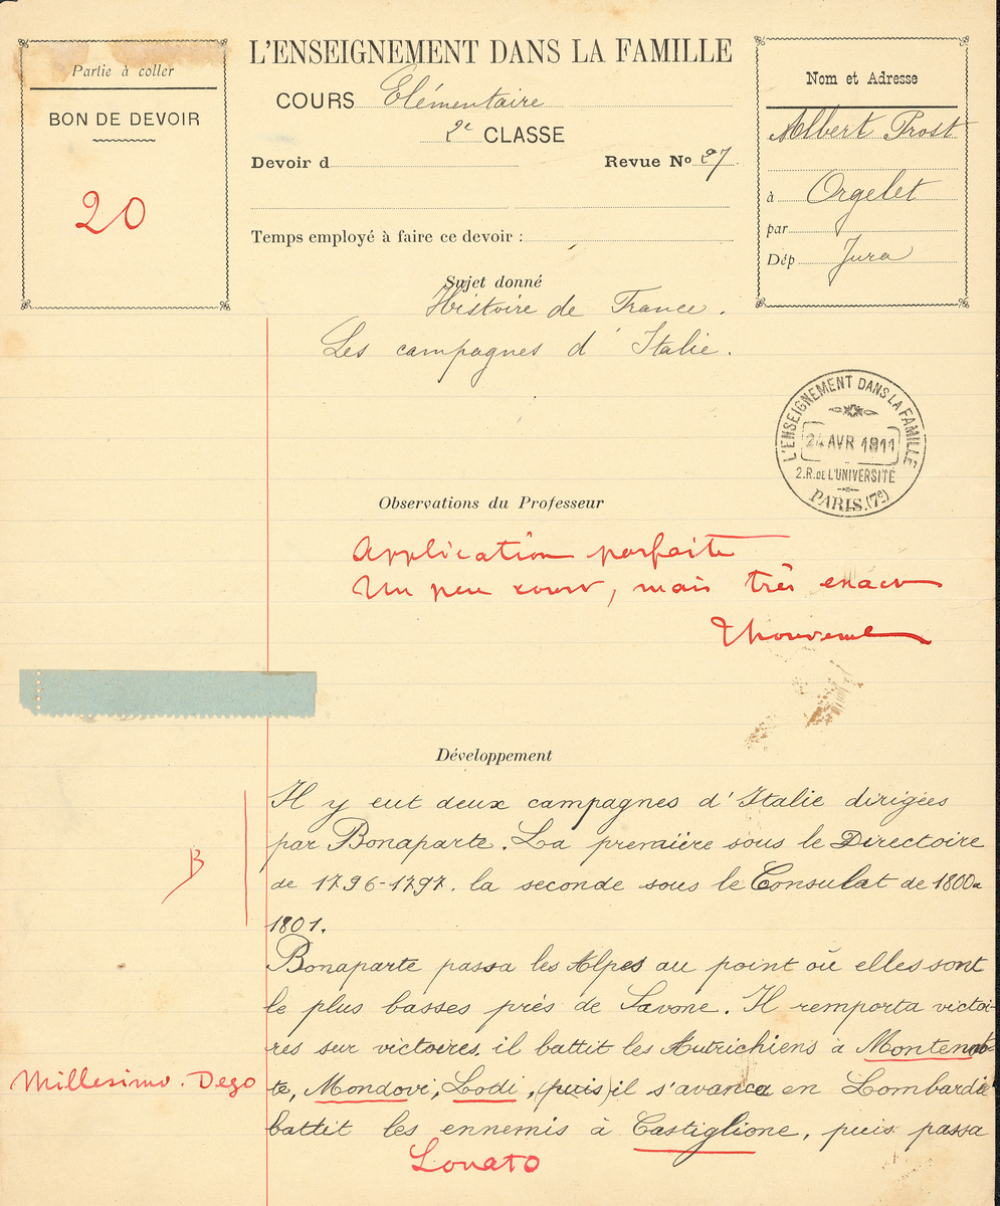 Partie à coller
BON DE DEVOIR
20
L'ENSEIGNEMENT DANS LA FAMILLE
COURS Elémentaire
2e CLASSE
Devoir d
Revue No 27
Temps employé à faire ce devoir :
Nom et Adresse
Albert Prost
à Orgelet
par
Dép Jura
Sujet donné
Histoire de France.
Les campagnes d'Italie.
L'ENSEIGNEMENT DANS LA FAMILLE
24 AVR 1911
2.R.DE L'UNIVERSITÉ
PARIS.(7e)
Observations du Professeur
Application parfaite
Un peu court, mais très exact
Thouvenel
Développement
Il y eut deux campagnes d'Italie dirigées
par Bonaparte. La premiière sous le Directoire
B
de 1796-1797. la seconde sous le Consulat de 1800a
1801.
Bonaparte passa les Alpes au point où elles sont
le plus basses près de Savone. Il remporta victoi-
res sur victoires. il battit les Autrichiens à Montenot-
Millesimo. Dego
te, Mondovi, Lodi, (puis) il s'avança en Lombardie
battit les ennemis à Castiglione, puis passa
Lonato